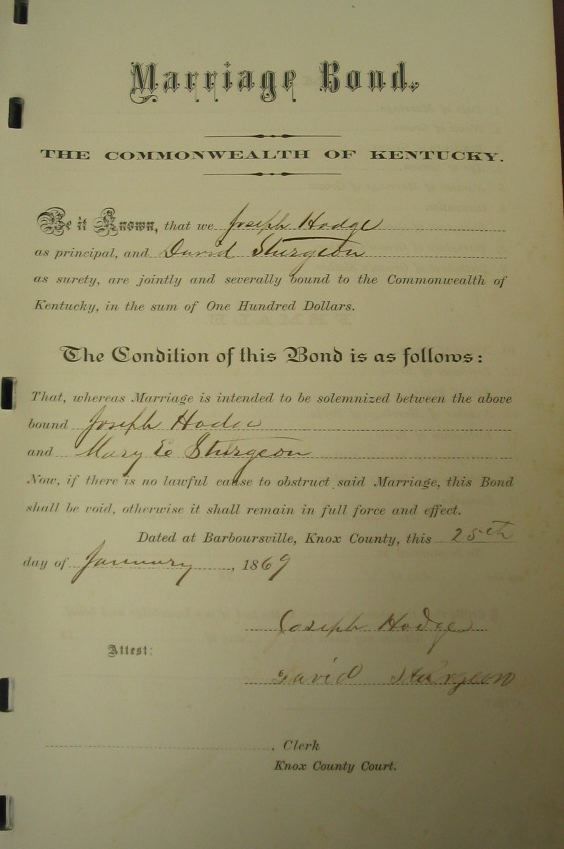 Marriage Bond.
THE COMMONWEALTH OF KENTUCKY.
Be it Known, that we Joseph Hodge
as principal, and David Sturgeon
as surety, are jointly and severally bound to the Commonwealth of
Kentucky, in the sum of One Hundred Dollars.
The Condition of this Bond is as follows:
That, whereas Marriage is intended to be solemnized between the above
bound Joseph Hodge
and Mary E Sturgeon
Now, if there is no lawful cause to obstruct said Marriage, this Bond
shall be void, otherwise it shall remain in full force and effect.
Dated at Barboursville, Knox County, this 25th
day of January, 1869
Joseph Hodge
Attest:
David Sturgeon
, Clerk
Knox County Court.